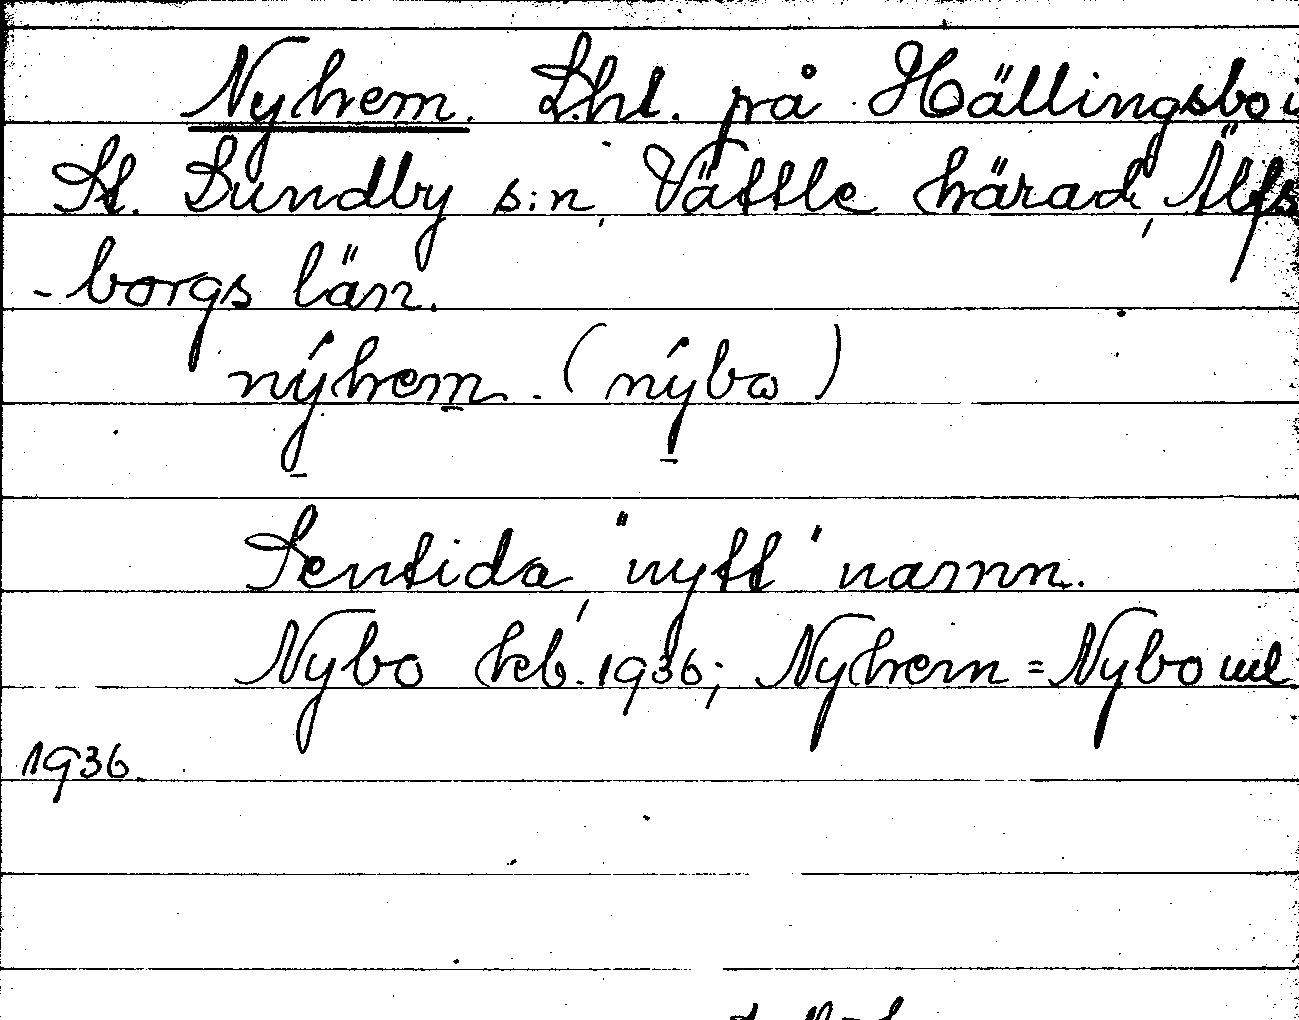 Nyhem. Lht. på Hällingsbo i
St. Lundby s:n, Vättle härad, Älfs
-borgs län.
nýhem. (nýbo)
Sentida, "nytt" namn.
Nybo kb. 1936; Nyhem = Nybo ml
1936.